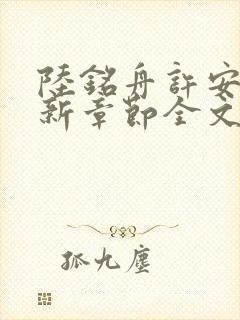 陸銘舟許安
新章節全文
孤九塵